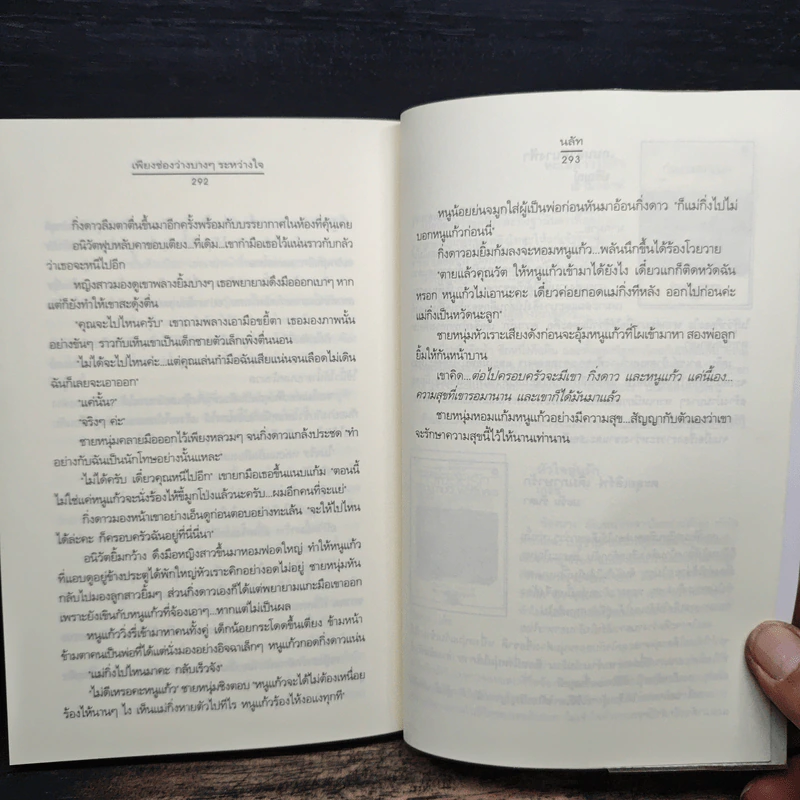 เพียงช่องว่างบางๆ ระหว่างใจ
292
กิ่งดาวลืมตาตื่นขึ้นมาอีกครั้งพร้อมกับบรรยากาศในห้องที่คุ้นเคย
อนิวัตฟุบหลับคาขอบเตียง...ที่เดิม...เขากำมือเธอไว้แน่นราวกับกลัว
ว่าเธอจะหนีไปอีก
หญิงสาวมองดูเขาพลางยิ้มบางๆ เธอพยายามดึงมือออกเบาๆ หาก
แต่ก็ยังทำให้เขาสะดุ้งตื่น
"คุณจะไปไหนครับ" เขาถามพลางเอามือขยี้ตา เธอมองภาพนั้น
อย่างขันๆ ราวกับเห็นเขาเป็นเด็กชายตัวเล็กเพิ่งตื่นนอน
"ไม่ได้จะไปไหนค่ะ...แต่คุณเล่นกำมือฉันเสียแน่นจนเลือดไม่เดิน
ฉันก็เลยจะเอาออก"
"แค่นั้น?"
"จริงๆ ค่ะ"
ชายหนุ่มคลายมือออกไว้เพียงหลวมๆ จนกิ่งดาวแกล้งประชด "ทำ
อย่างกับฉันเป็นนักโทษอย่างนั้นแหละ"
"ไม่ได้ครับ เดี๋ยวคุณหนีไปอีก" เขายกมือเธอขึ้นแนบแก้ม "ตอนนี้
ไม่ใช่แค่หนูแก้วจะนั่งร้องไห้ขี้มูกโป่งแล้วนะครับ...ผมอีกคนที่จะแย่"
กิ่งดาวมองหน้าเขาอย่างเอ็นดูก่อนตอบอย่างทะเล้น "จะให้ไปไหน
ได้ล่ะคะ ก็ครอบครัวฉันอยู่ที่นี่นี่นา"
อนิวัตยิ้มกว้าง ดึงมือหญิงสาวขึ้นมาหอมฟอดใหญ่ ทำให้หนูแก้ว
ที่แอบดูอยู่ข้างประตูได้พักใหญ่หัวเราะคิกอย่างอดไม่อยู่ ชายหนุ่มหัน
กลับไปมองลูกสาวยิ้มๆ ส่วนกิ่งดาวเองก็ได้แต่พยายามแกะมือเขาออก
เพราะยังเขินกับหนูแก้วที่จ้องเอาๆ...หากแต่ไม่เป็นผล
หนูแก้ววิ่งรี่เข้ามาหาคนทั้งคู่ เด็กน้อยกระโดดขึ้นเตียง ข้ามหน้า
ข้ามตาคนเป็นพ่อที่ได้แต่นั่งมองอย่างอิจฉาเล็กๆ หนูแก้วกอดกิ่งดาวแน่น
"แม่กิ่งไปไหนมาคะ กลับเร็วจัง"
"ไม่ดีเหรอคะหนูแก้ว" ชายหนุ่มชิงตอบ "หนูแก้วจะได้ไม่ต้องเหนื่อย
ร้องไห้นานๆ ไง เห็นแม่กิ่งหายตัวไปทีไร หนูแก้วร้องไห้งอแงทุกที"
นลัท
293
หนูน้อยย่นจมูกใส่ผู้เป็นพ่อก่อนหันมาอ้อนกิ่งดาว "ก็แม่กิ่งไปไม่
บอกหนูแก้วก่อนนี่"
กิ่งดาวอมยิ้มก้มลงจะหอมหนูแก้ว...พลันนึกขึ้นได้ร้องโวยวาย
"ตายแล้วคุณวัต ให้หนูแก้วเข้ามาได้ยังไง เดี๋ยวแกก็ติดหวัดฉัน
หรอก หนูแก้วไม่เอานะคะ เดี๋ยวค่อยกอดแม่กิ่งทีหลัง ออกไปก่อนค่ะ
แม่กิ่งเป็นหวัดนะลูก"
ชายหนุ่มหัวเราะเสียงดังก่อนจะอุ้มหนูแก้วที่โผเข้ามาหา สองพ่อลูก
ยิ้มให้กันหน้าบาน
เขาคิด...ต่อไปครอบครัวจะมีเขา กิ่งดาว และหนูแก้ว แค่นี้เอง...
ความสุขที่เขารอมานาน และเขาก็ได้มันมาแล้ว
ชายหนุ่มหอมแก้มหนูแก้วอย่างมีความสุข...สัญญากับตัวเองว่าเขา
จะรักษาความสุขนี้ไว้ให้นานเท่านาน